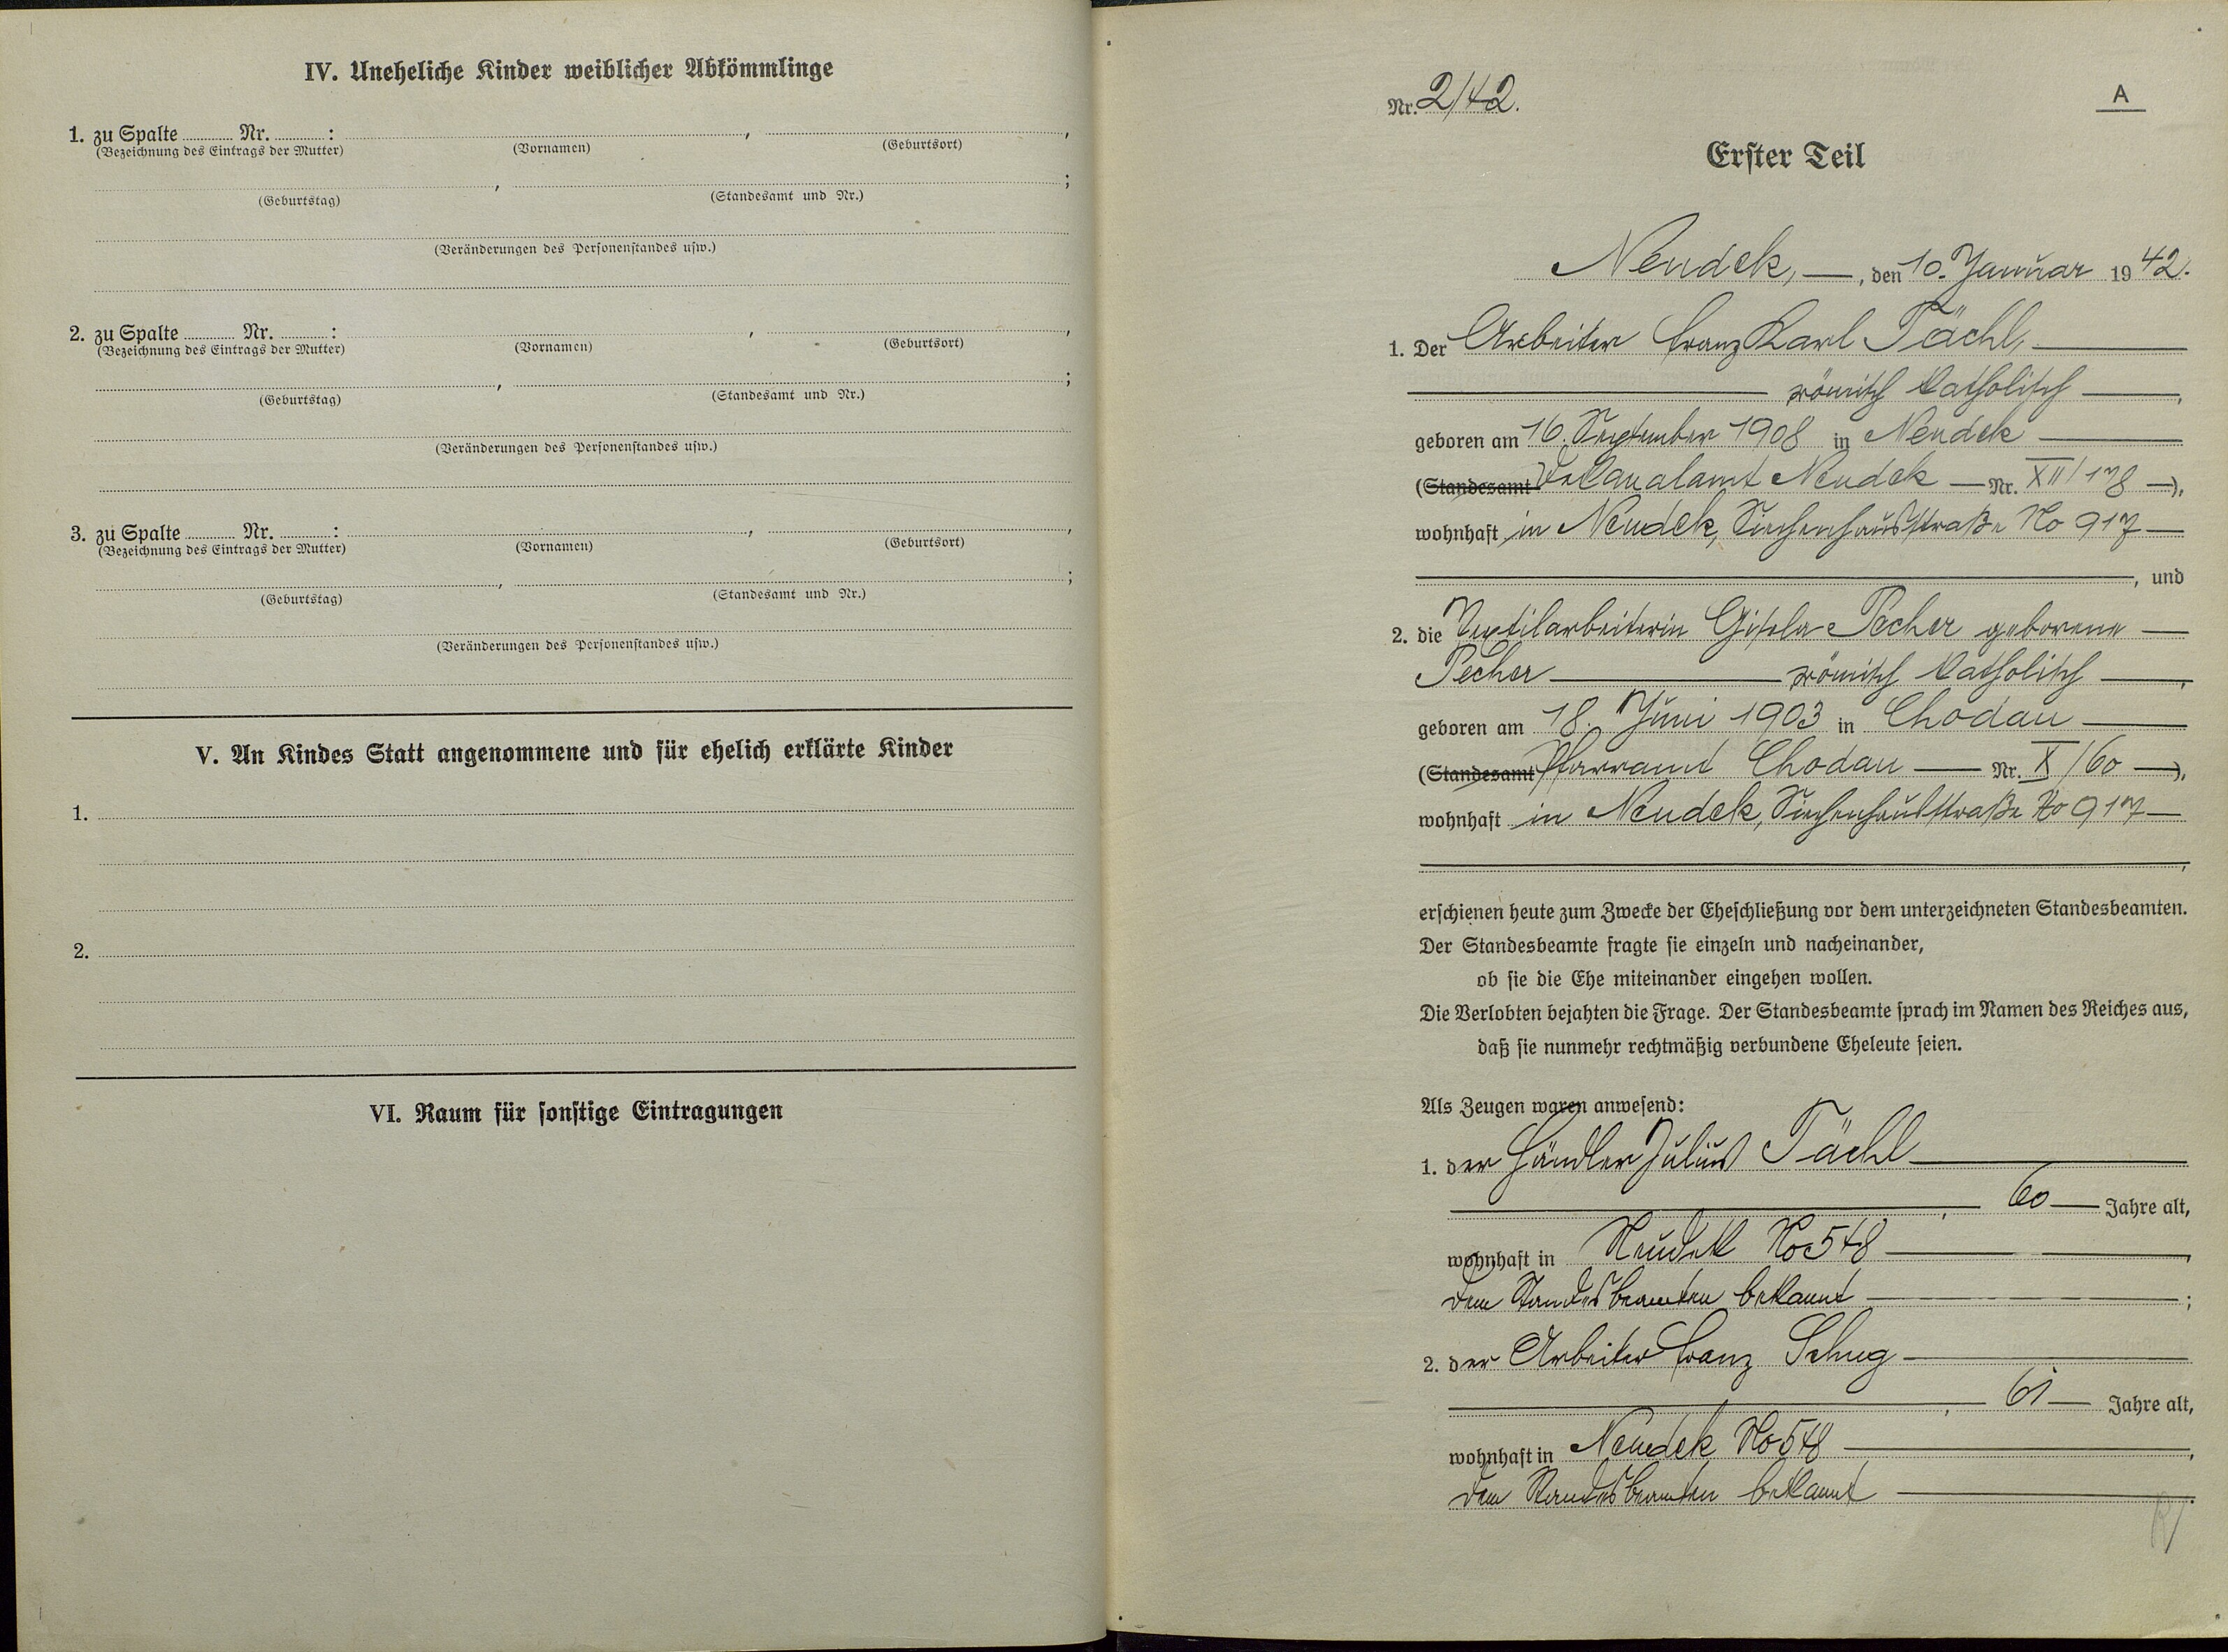 IV. Uneheliche Kinder weiblicher Abkömmlinge
1. zu Spalte ........ Nr. ........ : , ,
(Bezeichnung des Eintrags der Mutter) (Vornamen) (Geburtsort)
, ;
(Geburtstag) (Standesamt und Nr.)
(Veränderungen des Personenstandes usw.)
2. zu Spalte ........ Nr. ........ : , ,
(Bezeichnung des Eintrags der Mutter) (Vornamen) (Geburtsort)
, ;
(Geburtstag) (Standesamt und Nr.)
(Veränderungen des Personenstandes usw.)
3. zu Spalte ........ Nr. ........ : , ,
(Bezeichnung des Eintrags der Mutter) (Vornamen) (Geburtsort)
, ;
(Geburtstag) (Standesamt und Nr.)
(Veränderungen des Personenstandes usw.)
V. An Kindes Statt angenommene und für ehelich erklärte Kinder
1.
2.
VI. Raum für sonstige Eintragungen
Nr. 2/42.
A
Erster Teil
Neudek, —, den 10. Januar 1942.
1. Der Arbeiter Franz Karl Tächl, —
— römisch katholisch —,
geboren am 16. September 1908 in Neudek —
(Standesamt Dekanalamt Neudek — Nr. XII/178 —),
wohnhaft in Neudek, Siechenhausstraße No 917 —
—, und
2. die Textilarbeiterin Gisela Pecher geborene —
Pecher — römisch katholisch —,
geboren am 18. Juni 1903 in Chodau —
(Standesamt Pfarramt Chodau — Nr. X/60 —),
wohnhaft in Neudek, Siechenhausstraße No 917 —
—,
erschienen heute zum Zwecke der Eheschließung vor dem unterzeichneten Standesbeamten.
Der Standesbeamte fragte sie einzeln und nacheinander,
ob sie die Ehe miteinander eingehen wollen.
Die Verlobten bejahten die Frage. Der Standesbeamte sprach im Namen des Reiches aus,
daß sie nunmehr rechtmäßig verbundene Eheleute seien.
Als Zeugen waren anwesend:
1. der Händler Julius Tächl —
—, 60 — Jahre alt,
wohnhaft in Neudek No 548 —,
dem Standesbeamten bekannt —;
2. der Arbeiter Franz Schug —
—, 61 — Jahre alt,
wohnhaft in Neudek No 548 —,
dem Standesbeamten bekannt —.